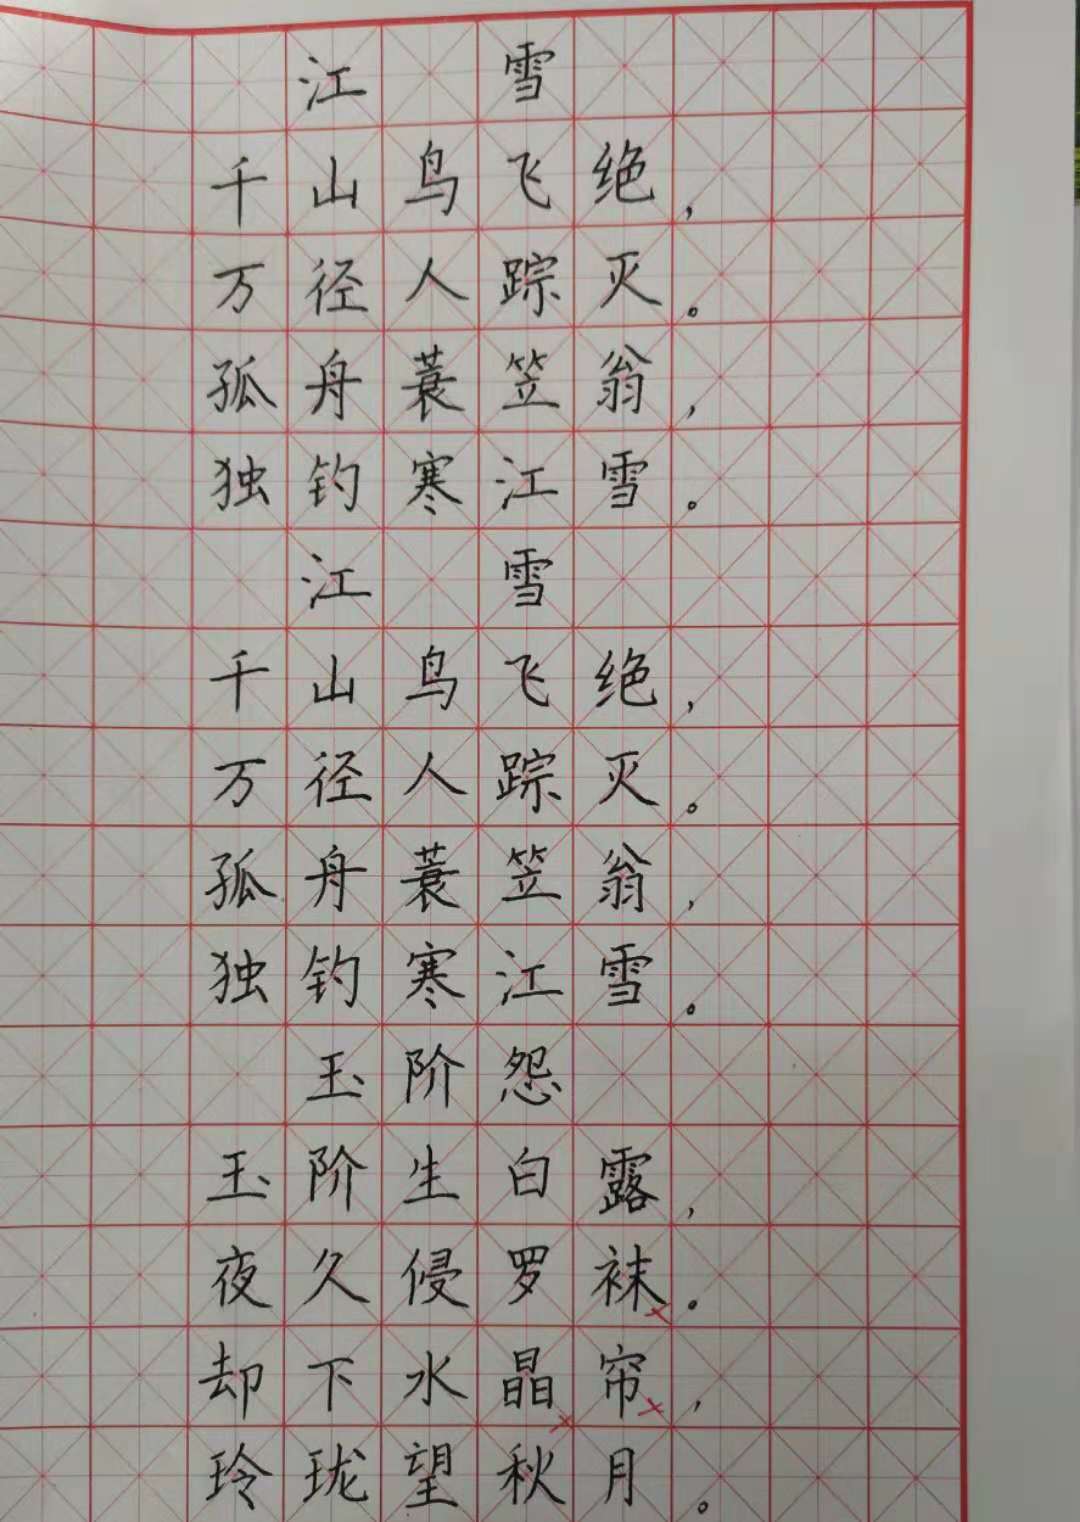 江雪
千山鸟飞绝，
万径人踪灭。
孤舟蓑笠翁，
独钓寒江雪。
江雪
千山鸟飞绝，
万径人踪灭。
孤舟蓑笠翁，
独钓寒江雪。
玉阶怨
玉阶生白露，
夜久侵罗袜。
却下水晶帘，
玲珑望秋月。